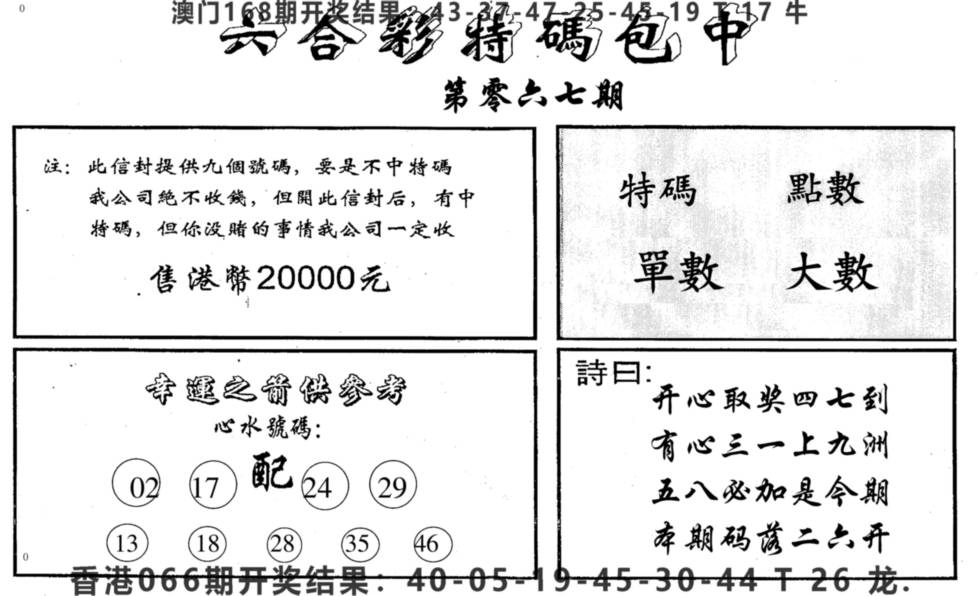 澳门168期开奖结果：43-37-47-25-45-19 T 17 牛
六合彩特碼包中
第零六七期
注：此信封提供九個號碼，要是不中特碼
我公司絕不收錢，但開此信封后，有中
特碼，但你没賭的事情我公司一定收
售港幣20000元
特碼 點數
單數 大數
幸運之前供參考
心水號碼：
配
02 17 24 29
13 18 28 35 46
詩曰：
开心取奖四七到
有心三一上九洲
五八必加是今期
本期码落二六开
香港066期开奖结果：40-05-19-45-30-44 T 26 龙.